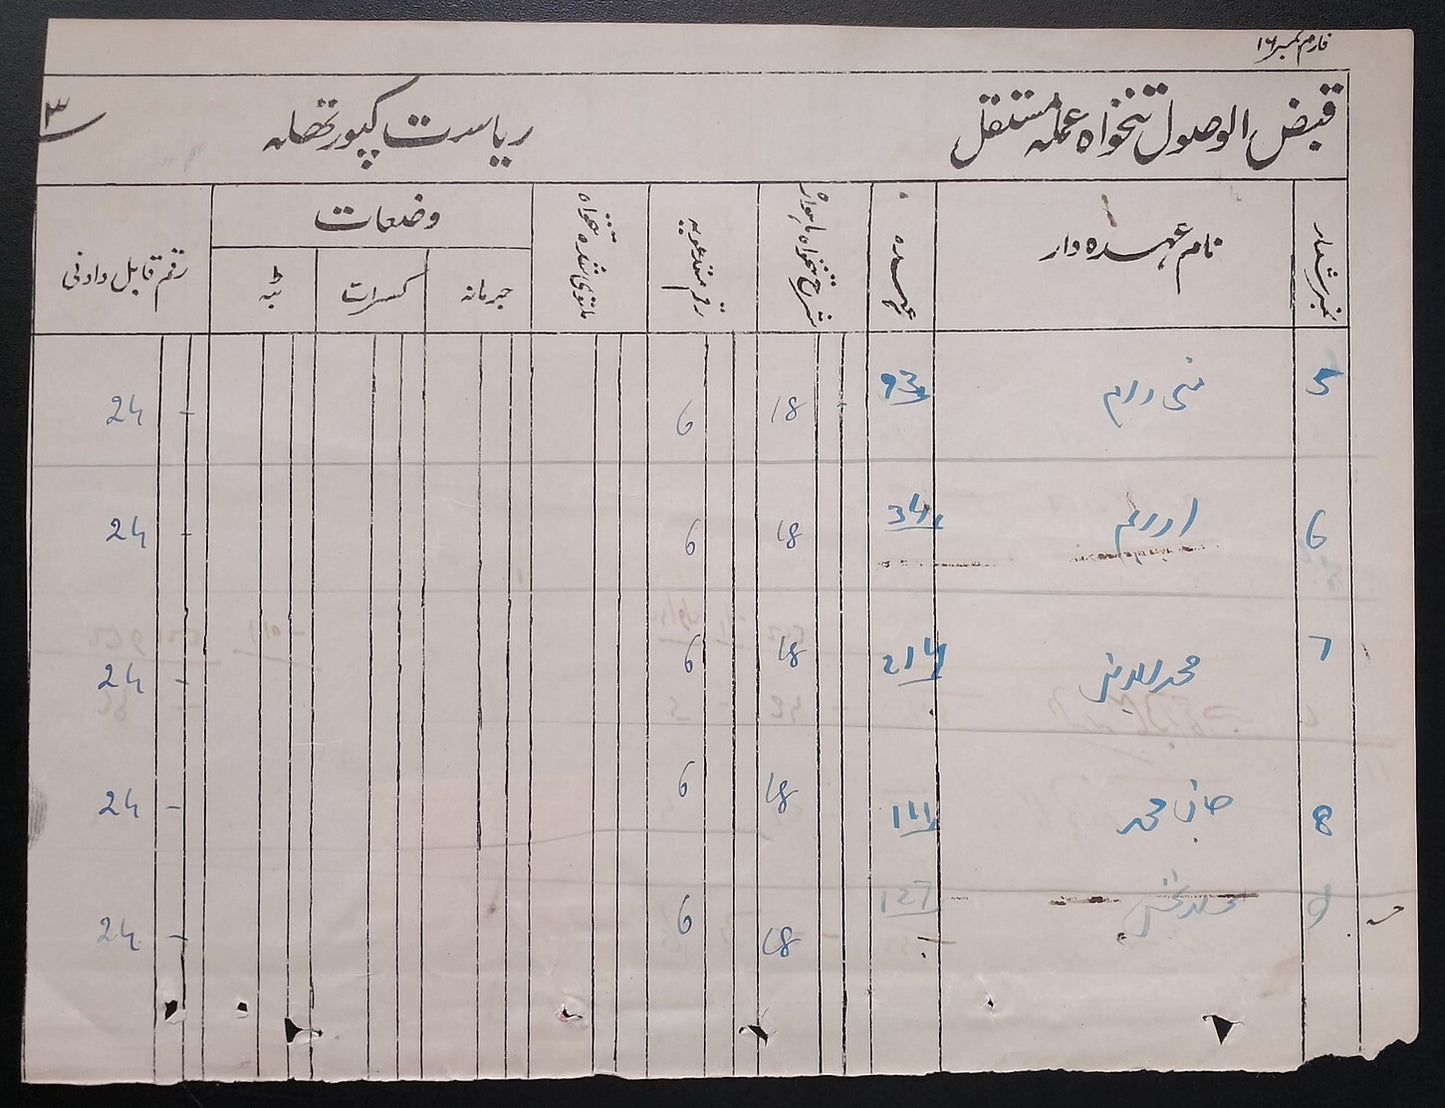 فارم نمبر ۱۶
قبض الوصول تنخواہ عملہ مستقل ریاست کپورتھلہ
نمبر شمار نام عہدہ دار عہدہ شرح تنخواہ ماہوار رقم متدعویہ ملتوی شدہ تنخواہ وضعات رقم قابل دادنی
جرمانہ کسرات
5 منی رام 93 18 - 6 24 -
6 34 18 6 24 -
7 محمد الدین 214 18 6 24 -
8 جان محمد 111 18 6 24 -
9 127 18 6 24 -